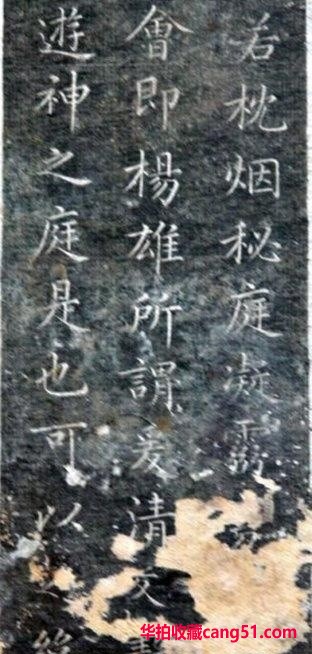 若枕烟秘庭凝霧
會即楊雄所謂爰清
遊神之庭是也可以
华拍收藏cang51.com